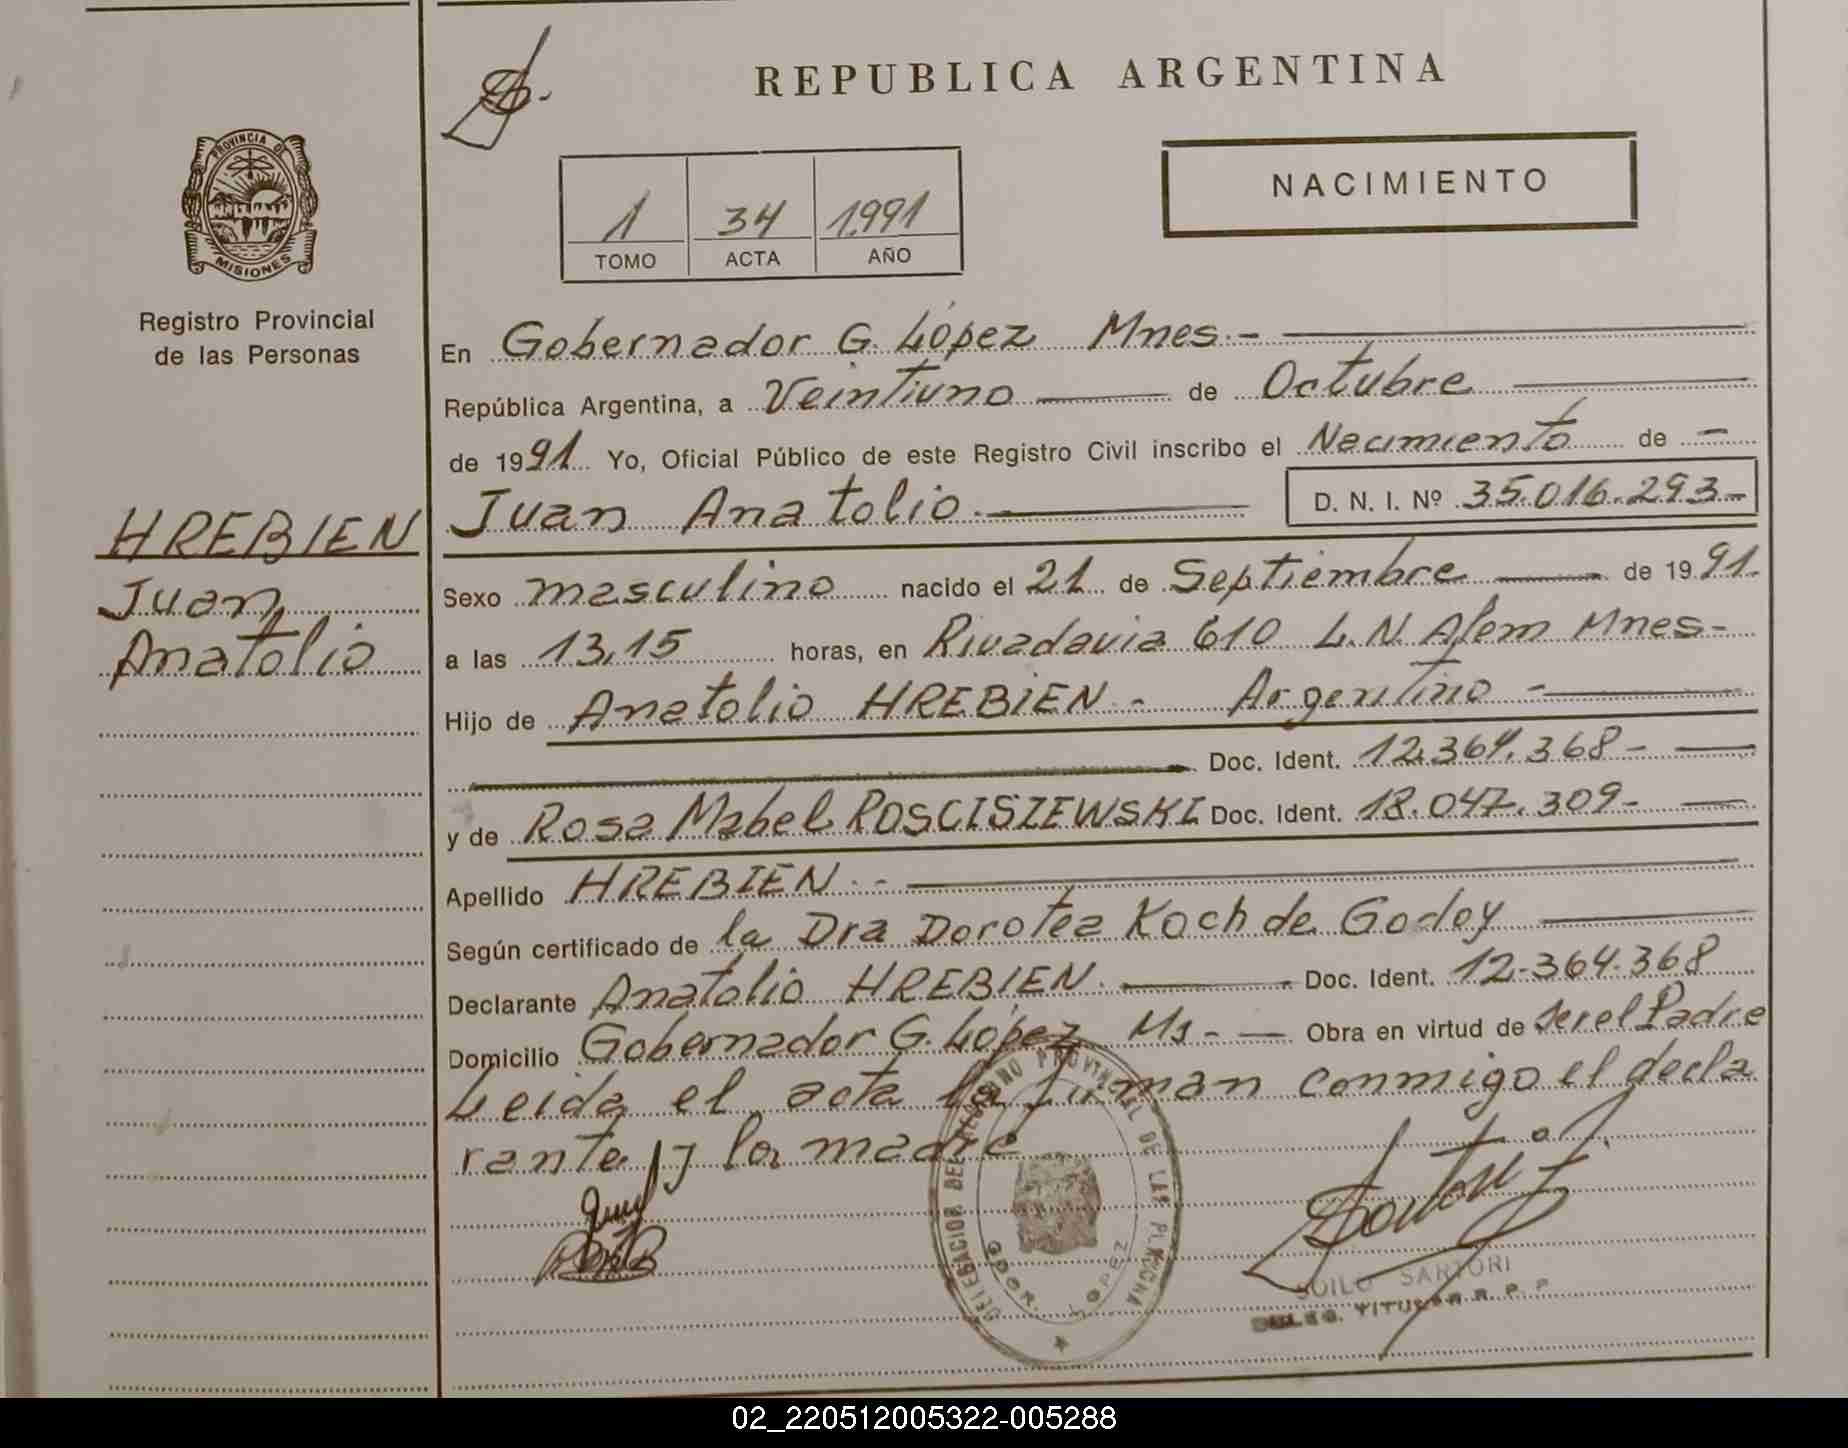 REPUBLICA ARGENTINA
NACIMIENTO
1 34 1991
TOMO ACTA AÑO
PROVINCIA DE
MISIONES
Registro Provincial
de las Personas
HREBIEN
Juan
Anatolio
En Gobernador G. López Mnes.-
República Argentina, a Veintiuno de Octubre
de 1991. Yo, Oficial Público de este Registro Civil inscribo el Nacimiento de -
Juan Anatolio.- D. N. I. Nº 35.016.293-
Sexo masculino nacido el 21 de Septiembre de 1991.
a las 13,15 horas, en Rivadavia 610 L.N. Alem Mnes-
Hijo de Anatolio HREBIEN.- Argentino -
Doc. Ident. 12.364.368-
y de Rosa Mabel ROSCISZEWSKI Doc. Ident. 18.047.309-
Apellido HREBIEN.-
Según certificado de la Dra Dorotea Koch de Godoy
Declarante Anatolio HREBIEN. Doc. Ident. 12-364.368
Domicilio Gobernador G. López Ms- Obra en virtud de ser el Padre
Leida el acta la firman conmigo el decla
rante y la madre
DELEGACION DEL REGISTRO PROVINCIAL DE LAS PERSONAS
GDOR. LOPEZ
SARTORI
DELEG. TITULAR R. P. P.
02_220512005322-005288